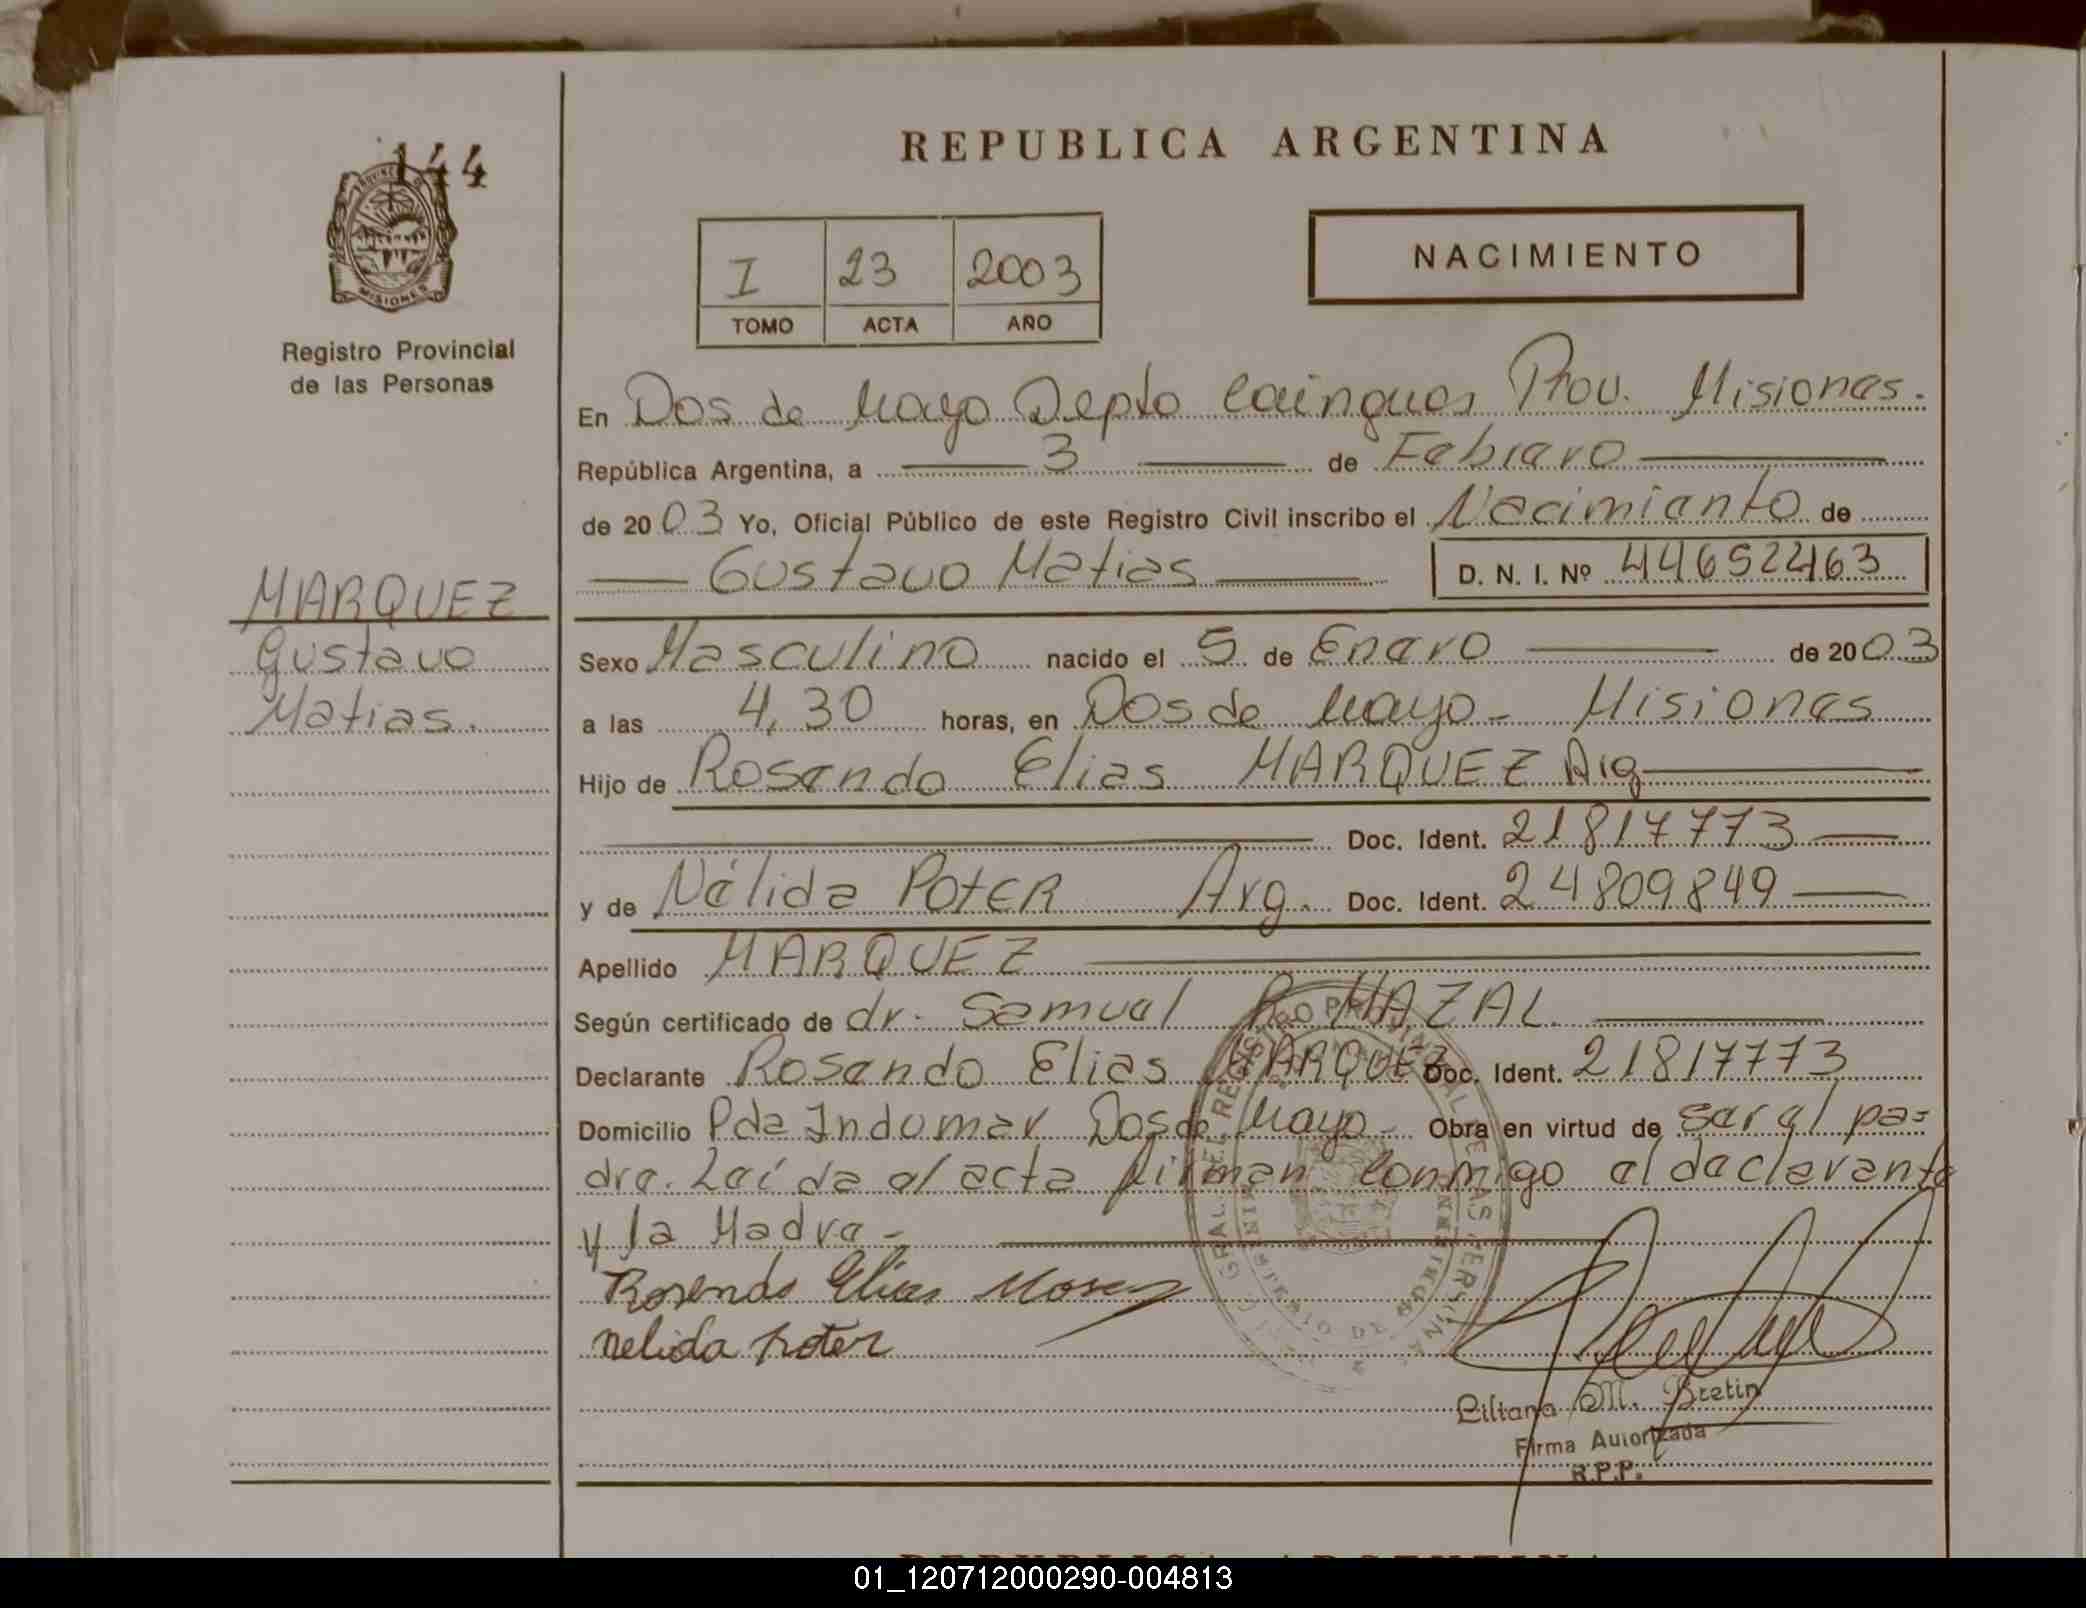 144
PROVINCIA DE
MISIONES
Registro Provincial
de las Personas
MARQUEZ
Gustavo
Matias.
REPUBLICA ARGENTINA
I 23 2003
TOMO ACTA AÑO
NACIMIENTO
En Dos de Mayo Depto Cainguas Prov. Misiones.
República Argentina, a 3 de Febrero
de 2003 Yo, Oficial Público de este Registro Civil inscribo el Nacimiento de
Gustavo Matias D. N. I. Nº 44652463
Sexo Masculino nacido el 5 de Enero de 2003
a las 4,30 horas, en Dos de Mayo - Misiones
Hijo de Rosendo Elias MARQUEZ Arg
Doc. Ident. 21817773
y de Nélida PotER Arg. Doc. Ident. 24809849
Apellido MARQUEZ
Según certificado de dr. Samuel R MAZAL.
Declarante Rosendo Elias MARQUEZ Doc. Ident. 21817773
Domicilio Pda Indumar Dos de Mayo - Obra en virtud de ser el pa=
dre. Leída el acta firman conmigo el declarante
y la Madre -
Rosendo Elias
Nelida Poter
Liliana M. Bretin
Firma Autorizada
R.P.P.
REPUBLICA ARGENTINA
01_120712000290-004813